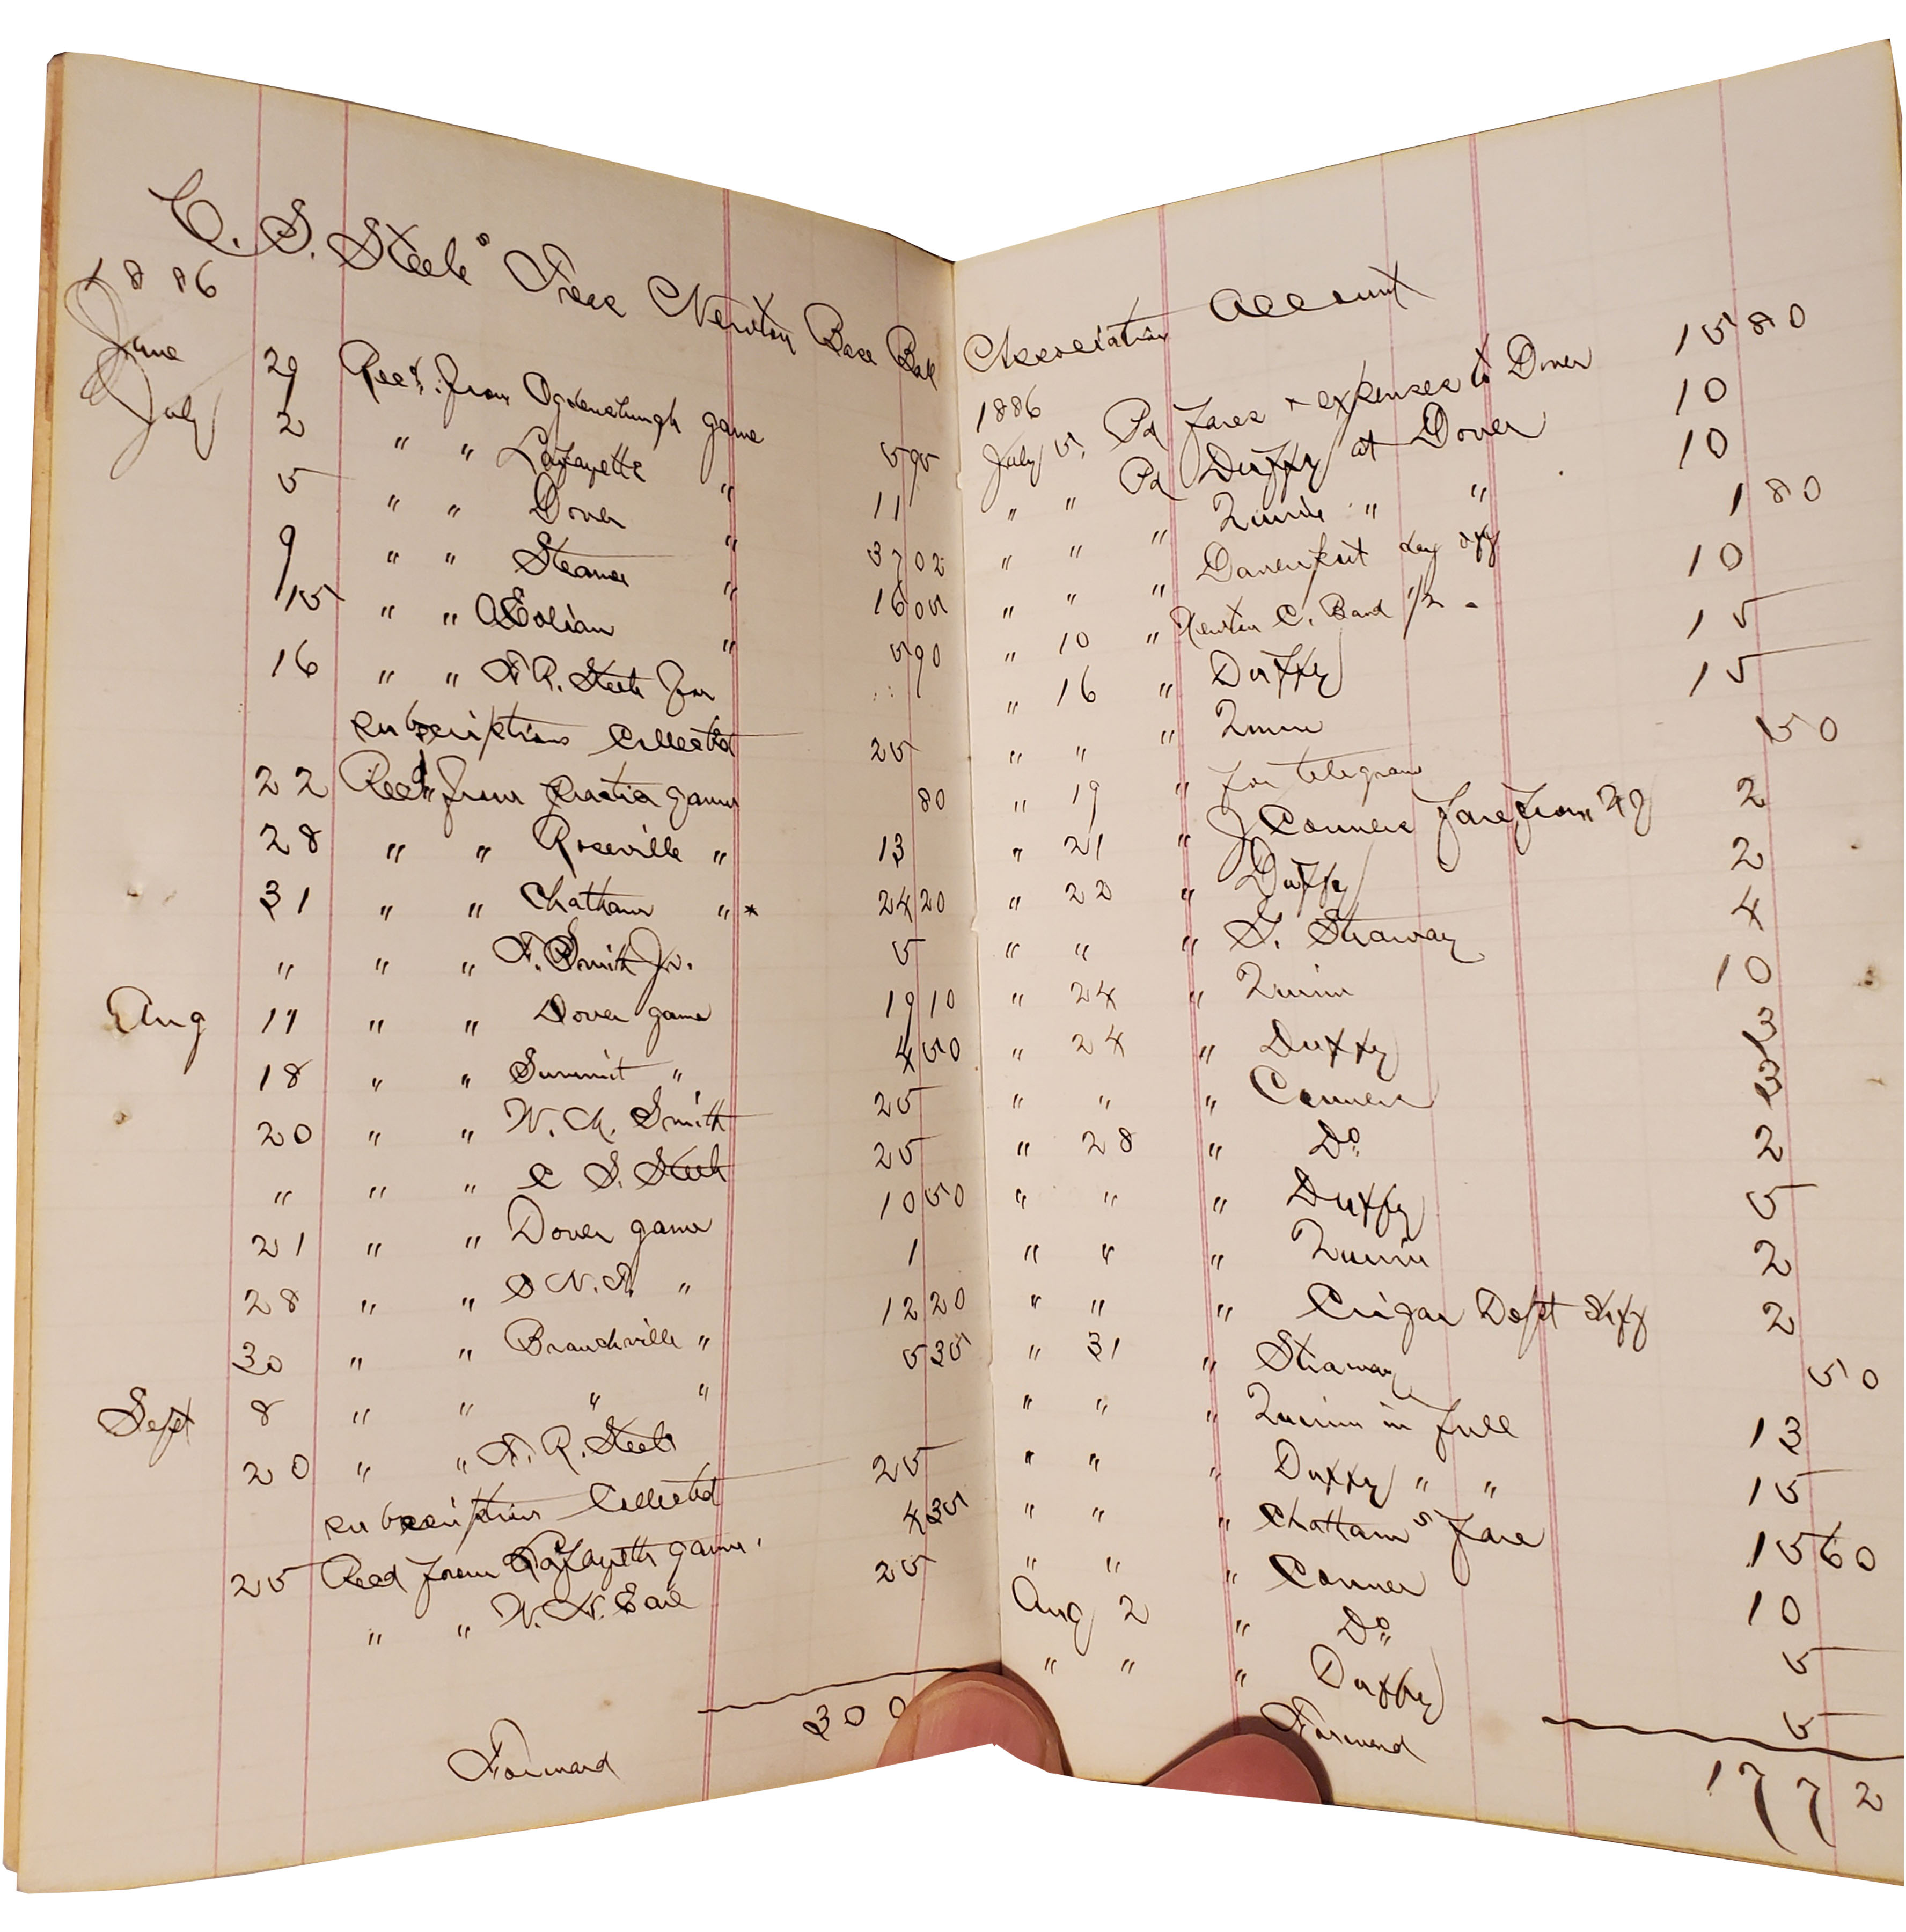 C. S. Steele's Treas Newton Base Ball Association Account
1886
June 29 Recd. from Ogdensburgh game 5 95
July 2 " " Lafayette " 11
5 " " Dover " 37 02
9 " " Steamer " 16 05
15 " " AEolian " 5 90
16 " " A R. Steele from
subscriptions collected 25
22 Recd from practice game 80
28 " " Roseville " 13
31 " " Chatham " * 24 20
" " " F. Smith Jr. 5
Aug 17 " " Dover game 19 10
18 " " Summit " 4 50
20 " " W. A. Smith 25
" " " C S. Steele 25
21 " " Dover game 10 50
28 " " S N. A. " 1
30 " " Branchville " 12 20
Sept 8 " " " " 5 35
20 " " A. R. Steele
subscription Collected 25
25 Recd from Lafayette game. 4 35
" " W. H. Earl 25
Forward 300
1886
July 5. Pd Fares + expenses to Dover 15 80
" " Pd Duffy at Dover 10
" " " Quinn " " 10
" " " Davenport day exp 1 80
" 10 " Newton C. Band 1/2 - 10
" 16 " Duffy 15
" " " Quinn 15
" 19 " for telegram 50
" 21 " J Conners fare from NY 2
" 22 " Duffy 2
" " " S. Straway 4
" 24 " Quinn 10
" 24 " Duffy 3
" " " Conners 3
" 28 " Do 2
" " " Duffy 5
" " " Quinn 2
" " " Crigar Dept exp 2
" 31 " Straway 50
" " " Quinn in full 13
" " " Duffy " " 15
" " " Chatham's fare 15 60
" " " Conner 10
Aug 2 " Do 5
" " " Duffy 5
Forward 177 2